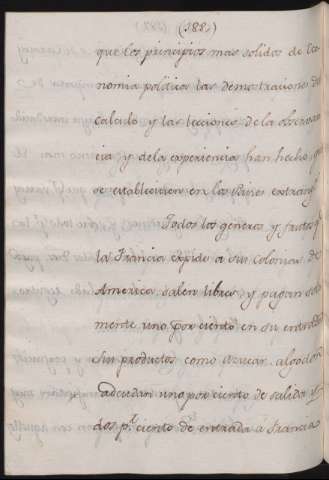 (188,)
que los principios mas solidos de Eco-
nomia politica las demostraciones del
calculo y las lecciones de la observan-
cia y dela experiencia han hecho que
se establecieren en los Paises extrang.s
Todos los generos y frutos q.e
la Francia expide a sus Colonias de
America salen libres y pagan sola
mente uno por ciento en su entrada
Sus productos como Azucar, algodon
adeudan uno por ciento de salida y
dos p.r ciento de entrada a Francia